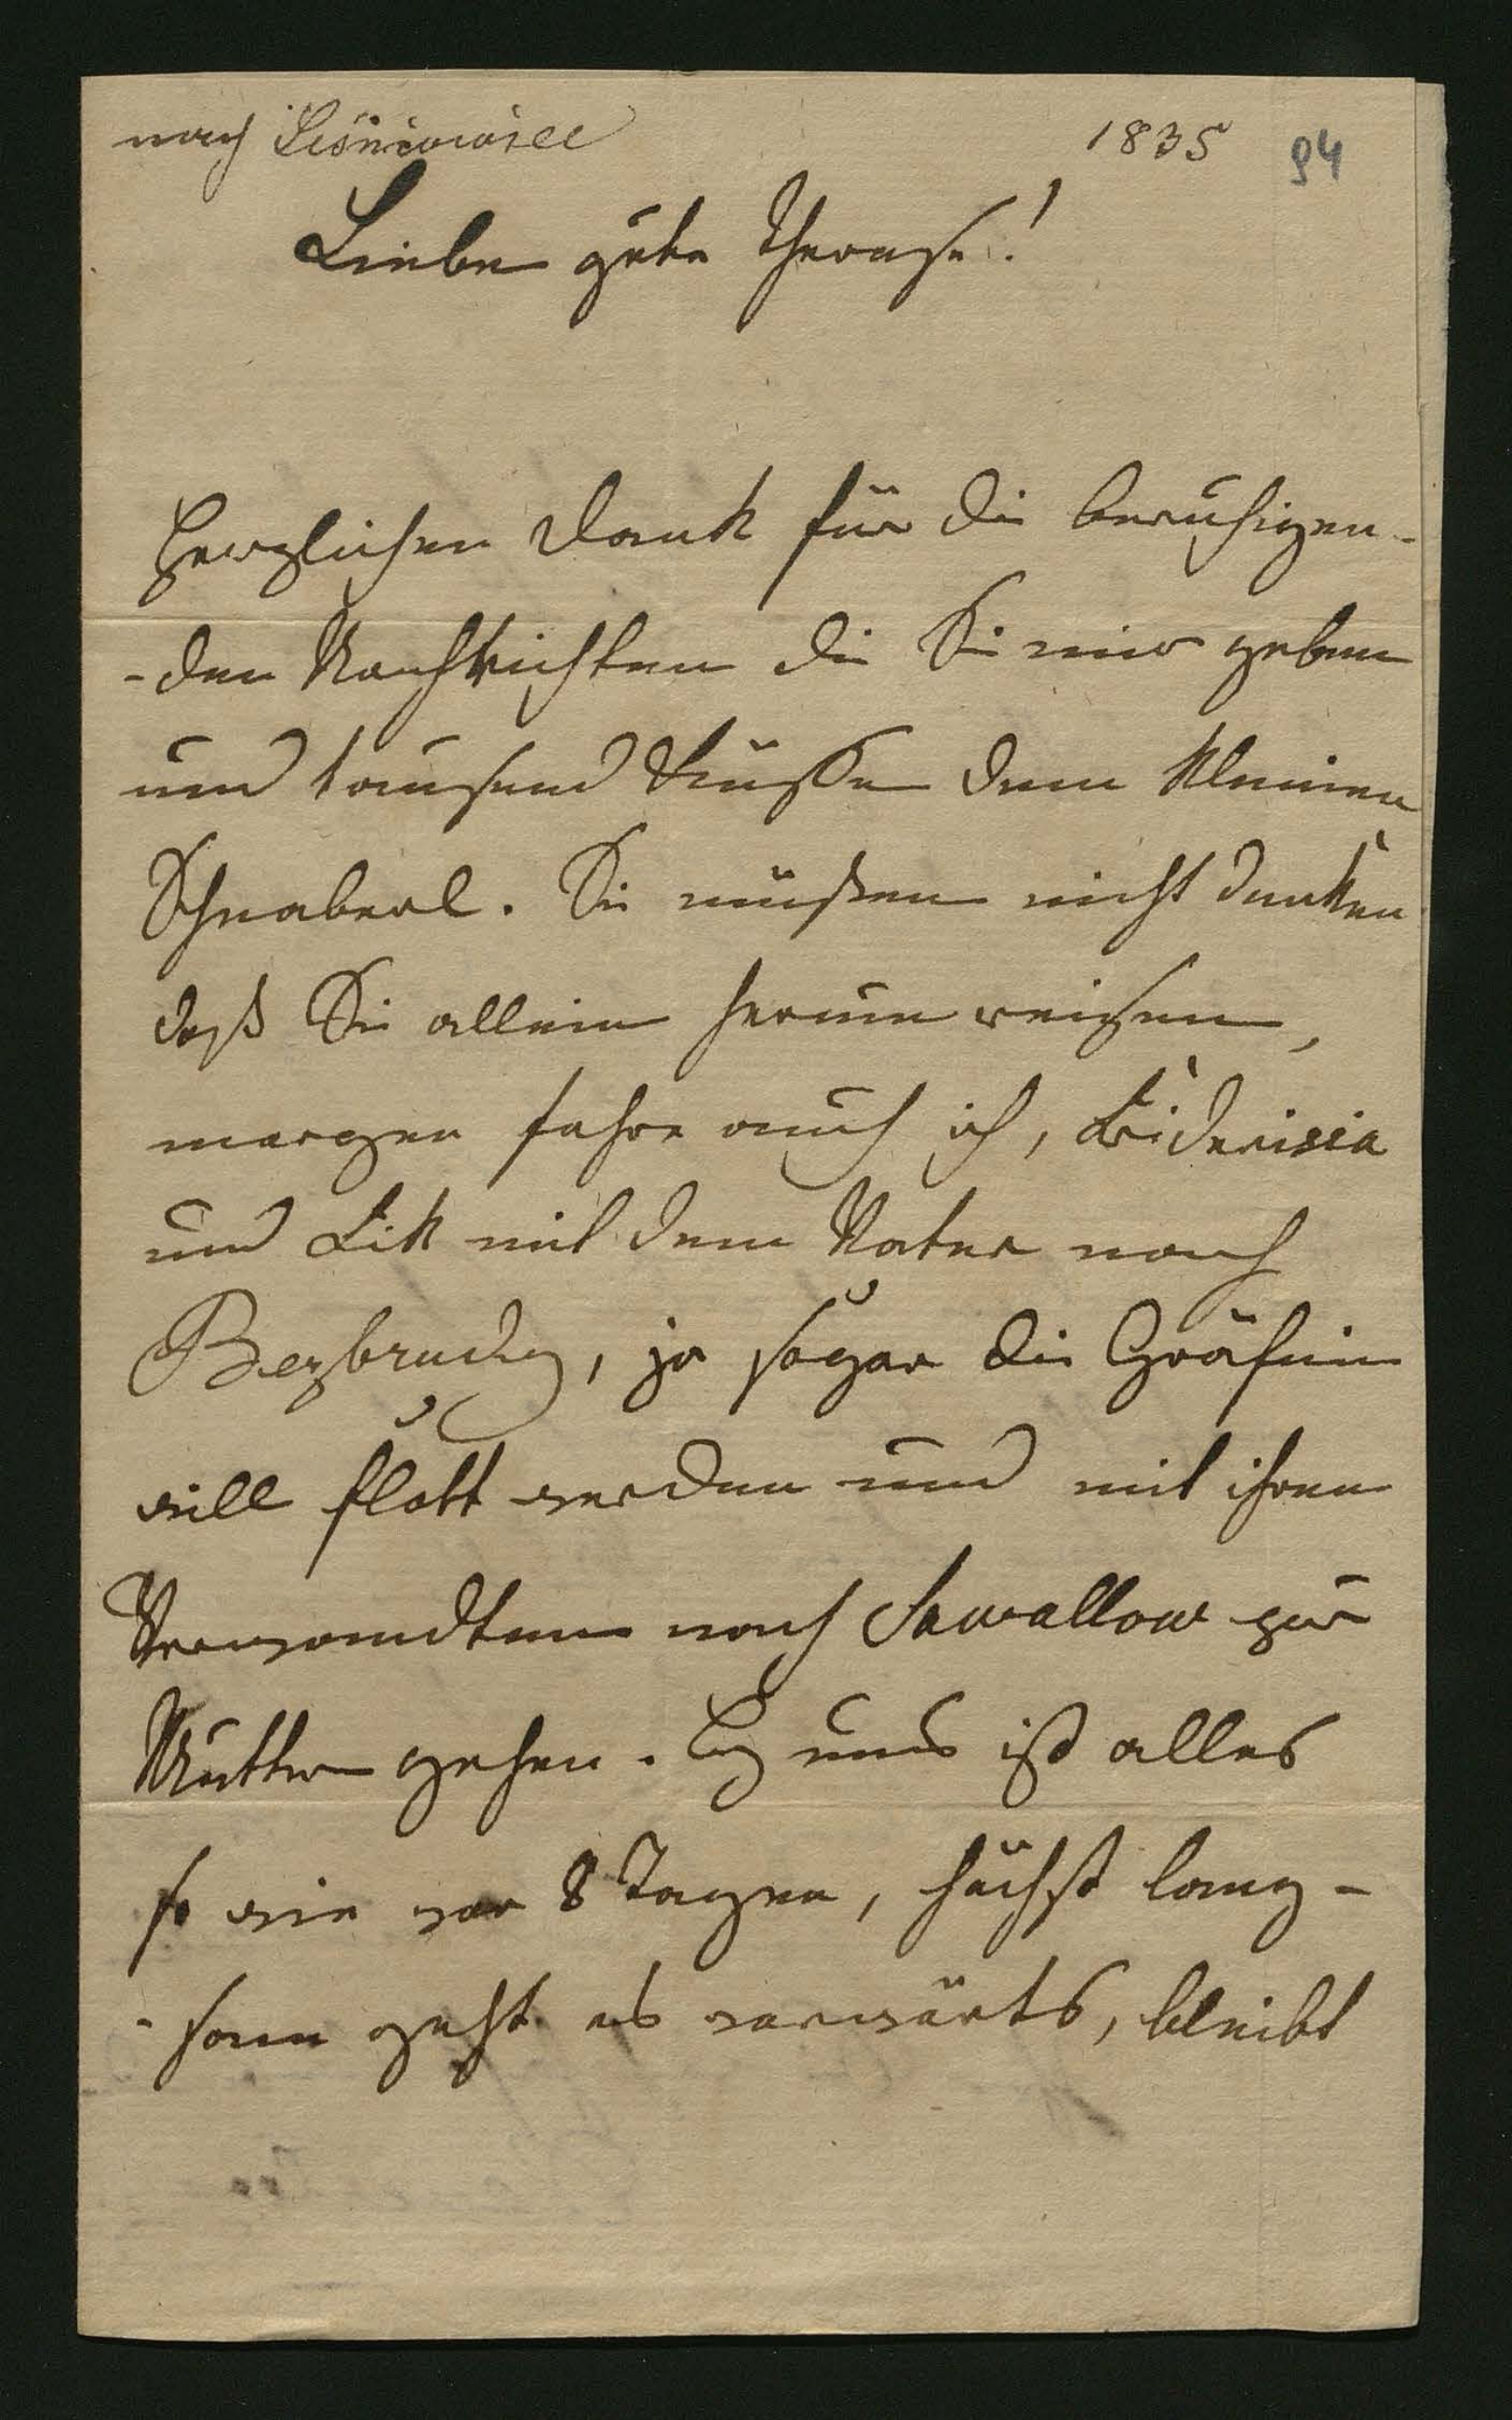 nach Leśniowice 1835 94
Liebe gute Therese!
Herzlichen Dank für die beruhigen-
-den Nachrichten die Sie mir geben
und tausend Küsse dem kleinen
Schnaberl. Sie müßen nicht denken
daß Sie allein herum reisen,
morgen fahre auch ich,
und mit dem Vater nach
Bezbrudy, ja sogar die Gräfinn
will flott werden und mit ihren
Verwandten nach Sawallow zur
Mutter gehen. Bey uns ist alles
so wie vor 8 Tagen, höchst lang-
-sam geht es vorwärts, bleibt